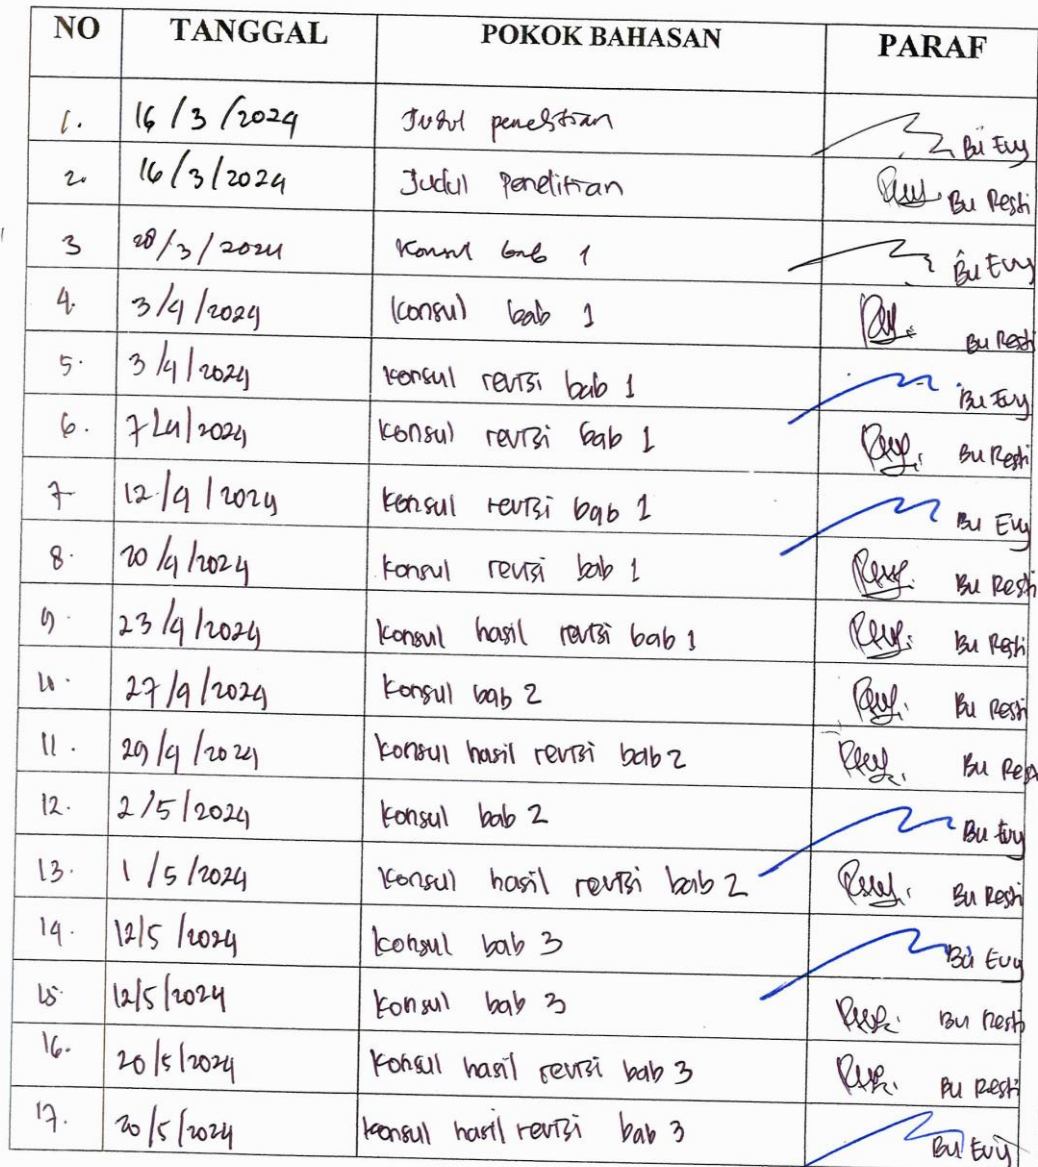 NO TANGGAL POKOK BAHASAN PARAF
1. 16/3/2024 Judul penelitian Bu Evy
2. 16/3/2024 Judul Penelitian Bu Resti
3 28/3/2024 Konsul bab 1 Bu Evy
4. 3/4/2024 Konsul bab 1 Bu Resti
5. 3/4/2024 Konsul revisi bab 1 Bu Evy
6. 7/4/2024 Konsul revisi bab 1 Bu Resti
7 12/4/2024 Konsul revisi bab 1 Bu Evy
8. 20/4/2024 Konsul revisi bab 1 Bu Resti
9. 23/4/2024 Konsul hasil revisi bab 1 Bu Resti
10. 27/4/2024 Konsul bab 2 Bu Resti
11. 29/4/2024 Konsul hasil revisi bab 2 Bu Resti
12. 2/5/2024 Konsul bab 2 Bu Evy
13. 1/5/2024 Konsul hasil revisi bab 2 Bu Resti
14. 12/5/2024 Konsul bab 3 Bu Evy
15. 12/5/2024 Konsul bab 3 Bu Resti
16. 20/5/2024 Konsul hasil revisi bab 3 Bu Resti
17. 20/5/2024 Konsul hasil revisi bab 3 Bu Evy